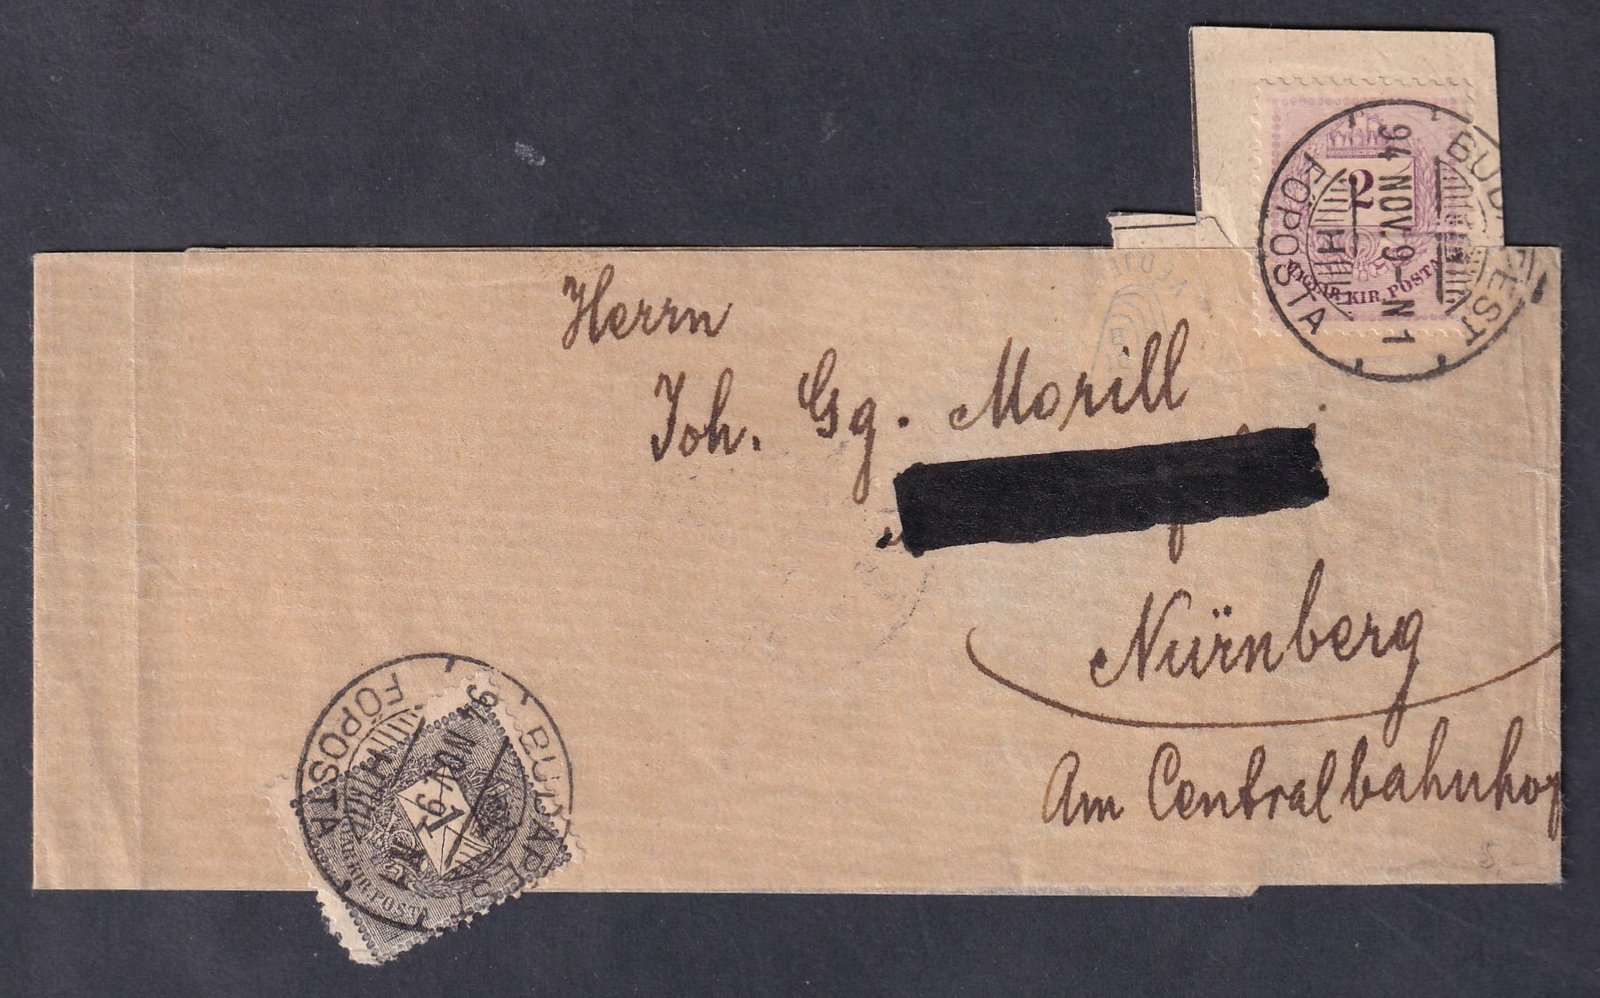 2
MAGYAR KIR. POSTA
BUDAPEST
94 NOV. 9 - N 1
H
FŐPOSTA
Herrn
Joh. Gg. Morill
Nürnberg
Am Centralbahnhof
BUDAPEST
94 NOV. 9
H
FŐPOSTA
1
KIR. POSTA